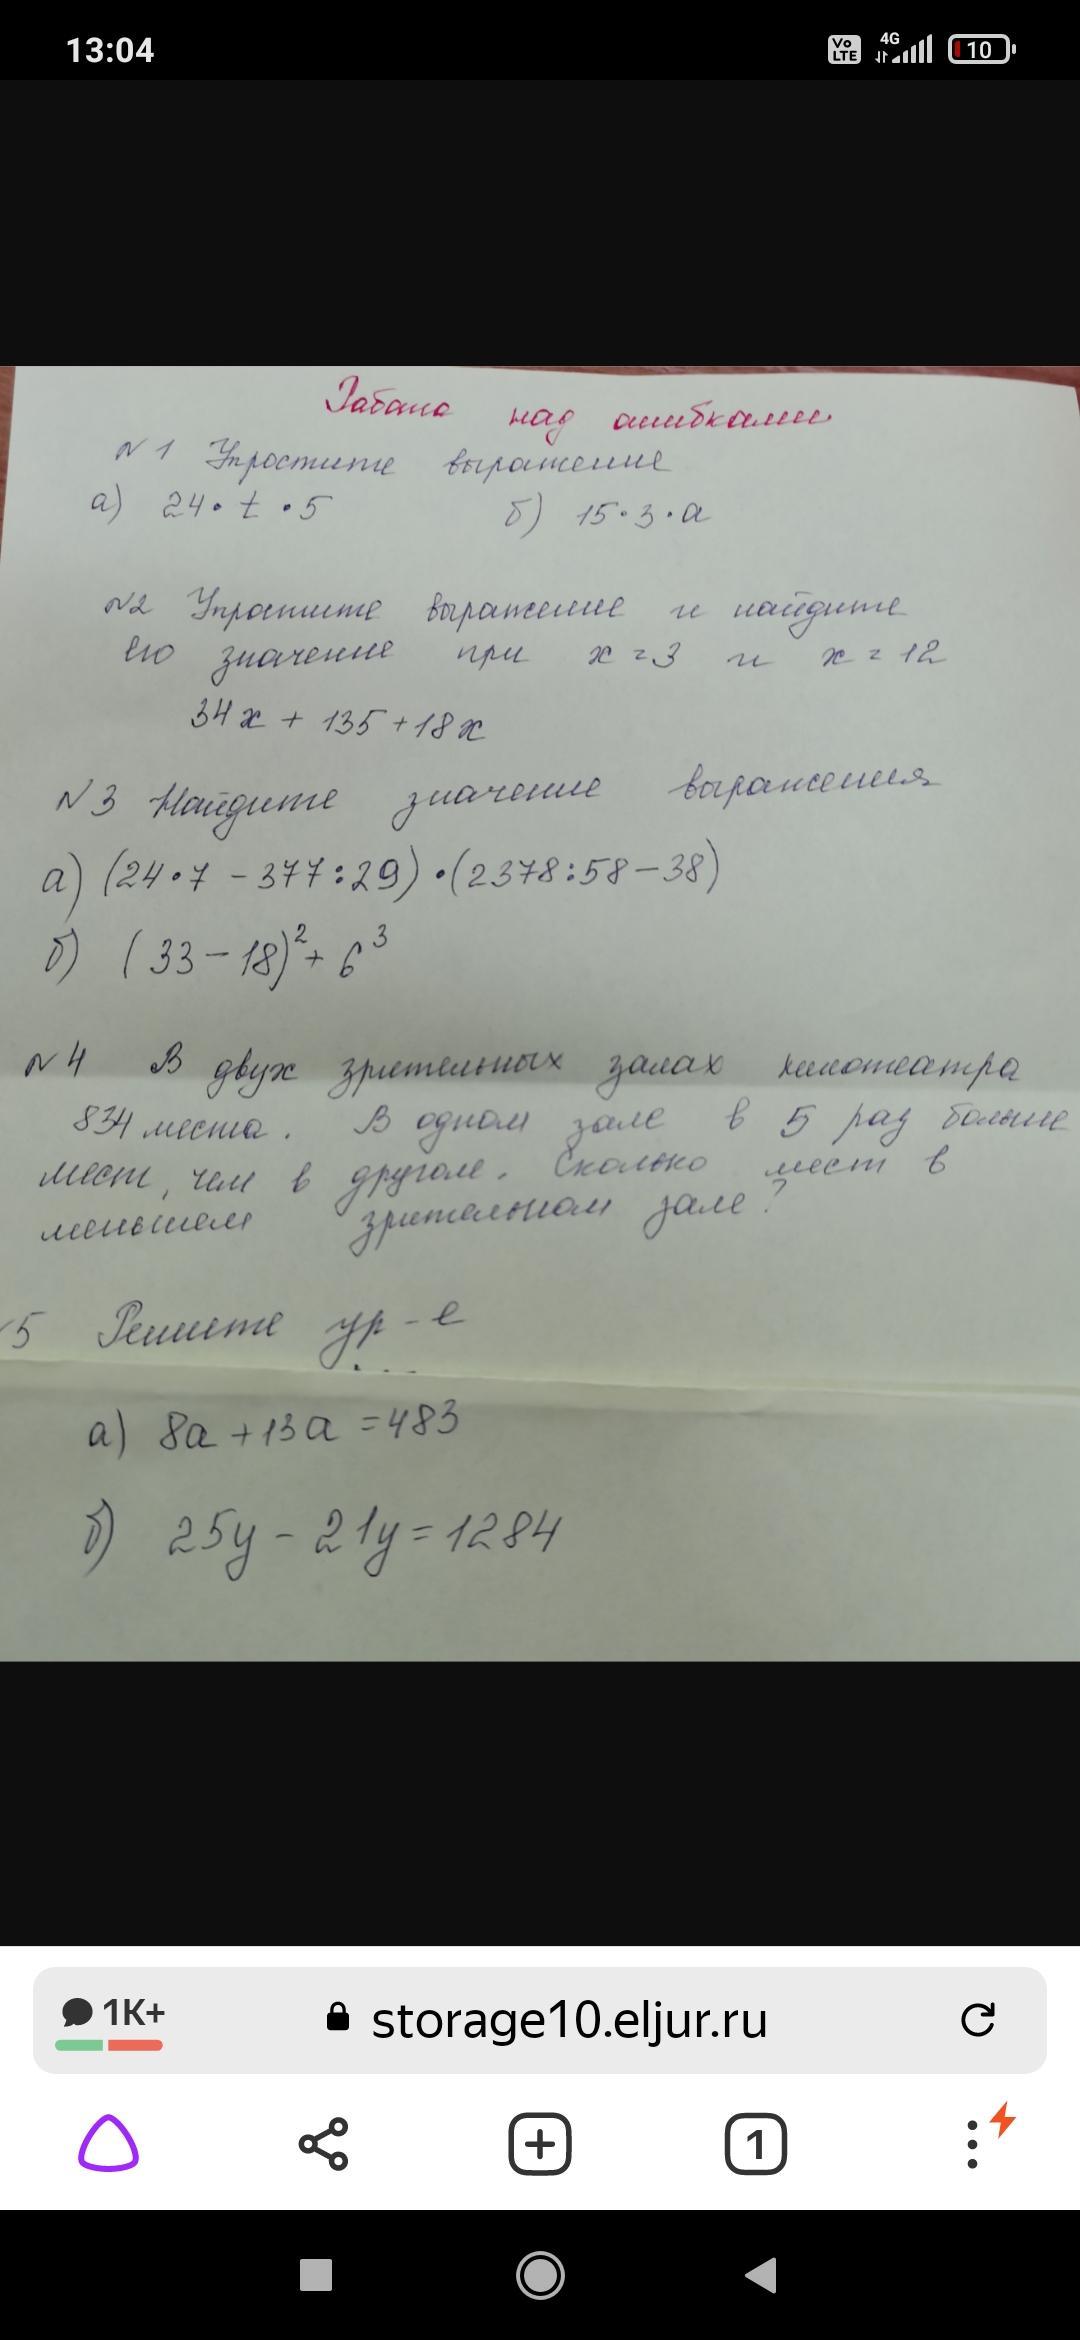 13:04
Vo LTE 4G 10
Работа над ошибками
N 1 Упростите выражение
а) 24 · t · 5 б) 15 · 3 · a
N2 Упростите выражение и найдите
его значение при x = 3 и x = 12
34x + 135 + 18x
N 3 Найдите значение выражения
а) (24 · 7 - 377 : 29) · (2378 : 58 - 38)
б) (33 - 18)² + 6³
N 4 В двух зрительных залах кинотеатра
834 места. В одном зале в 5 раз больше
мест, чем в другом. Сколько мест в
меньшем зрительном зале?
5 Решите ур-е
а) 8a + 13a = 483
б) 25y - 21y = 1284
1K+ storage10.eljur.ru
1